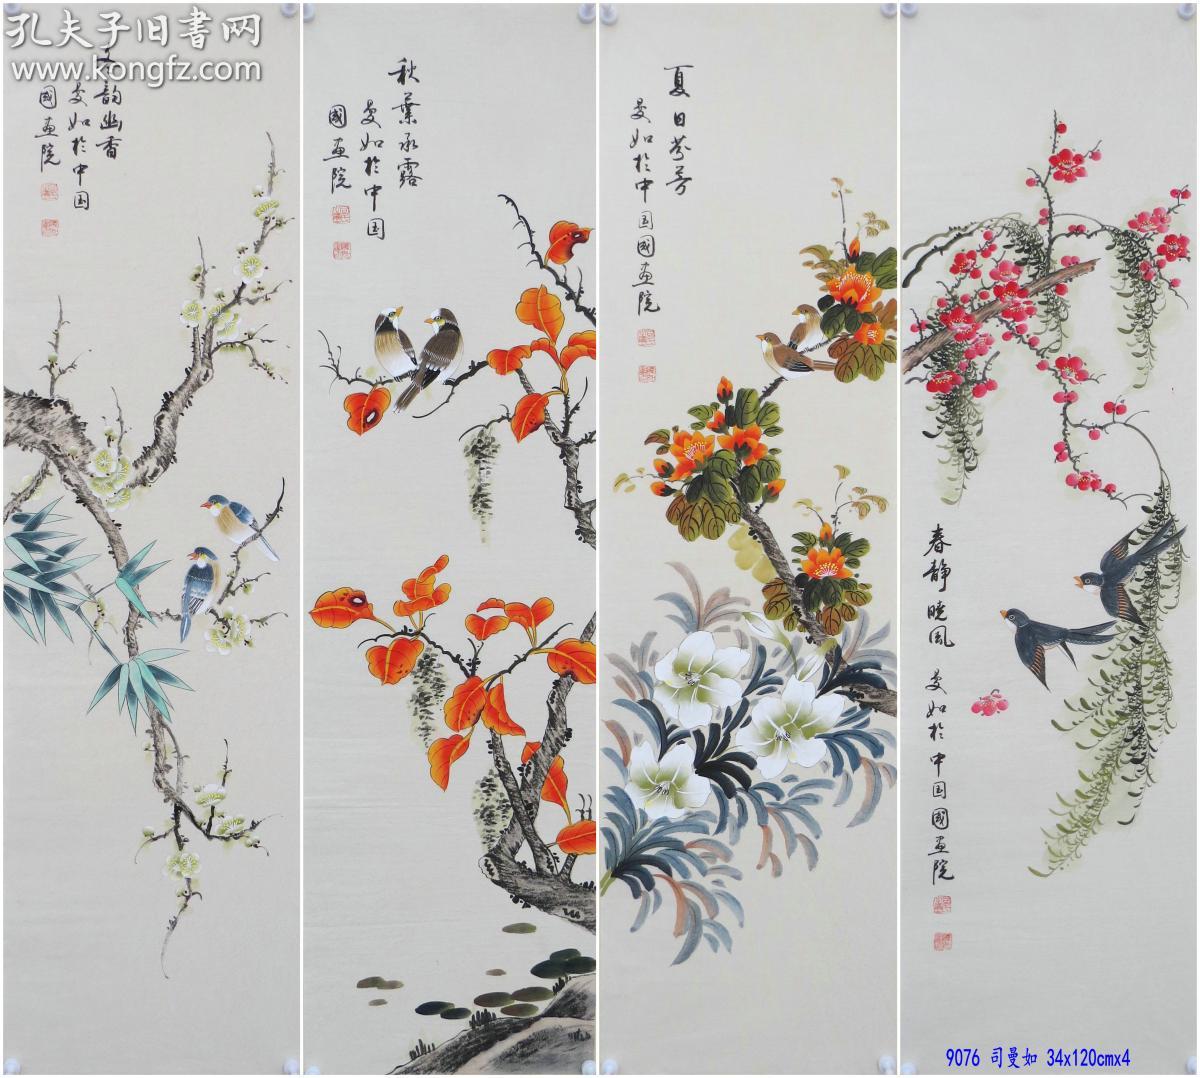 孔夫子旧書网
www.kongfz.com
韵幽香
曼如於中国
國画院
秋葉承露
曼如於中国
國画院
夏日芬芳
曼如於中国國画院
春静晓風
曼如於中国國画院
9076 司曼如 34x120cmx4